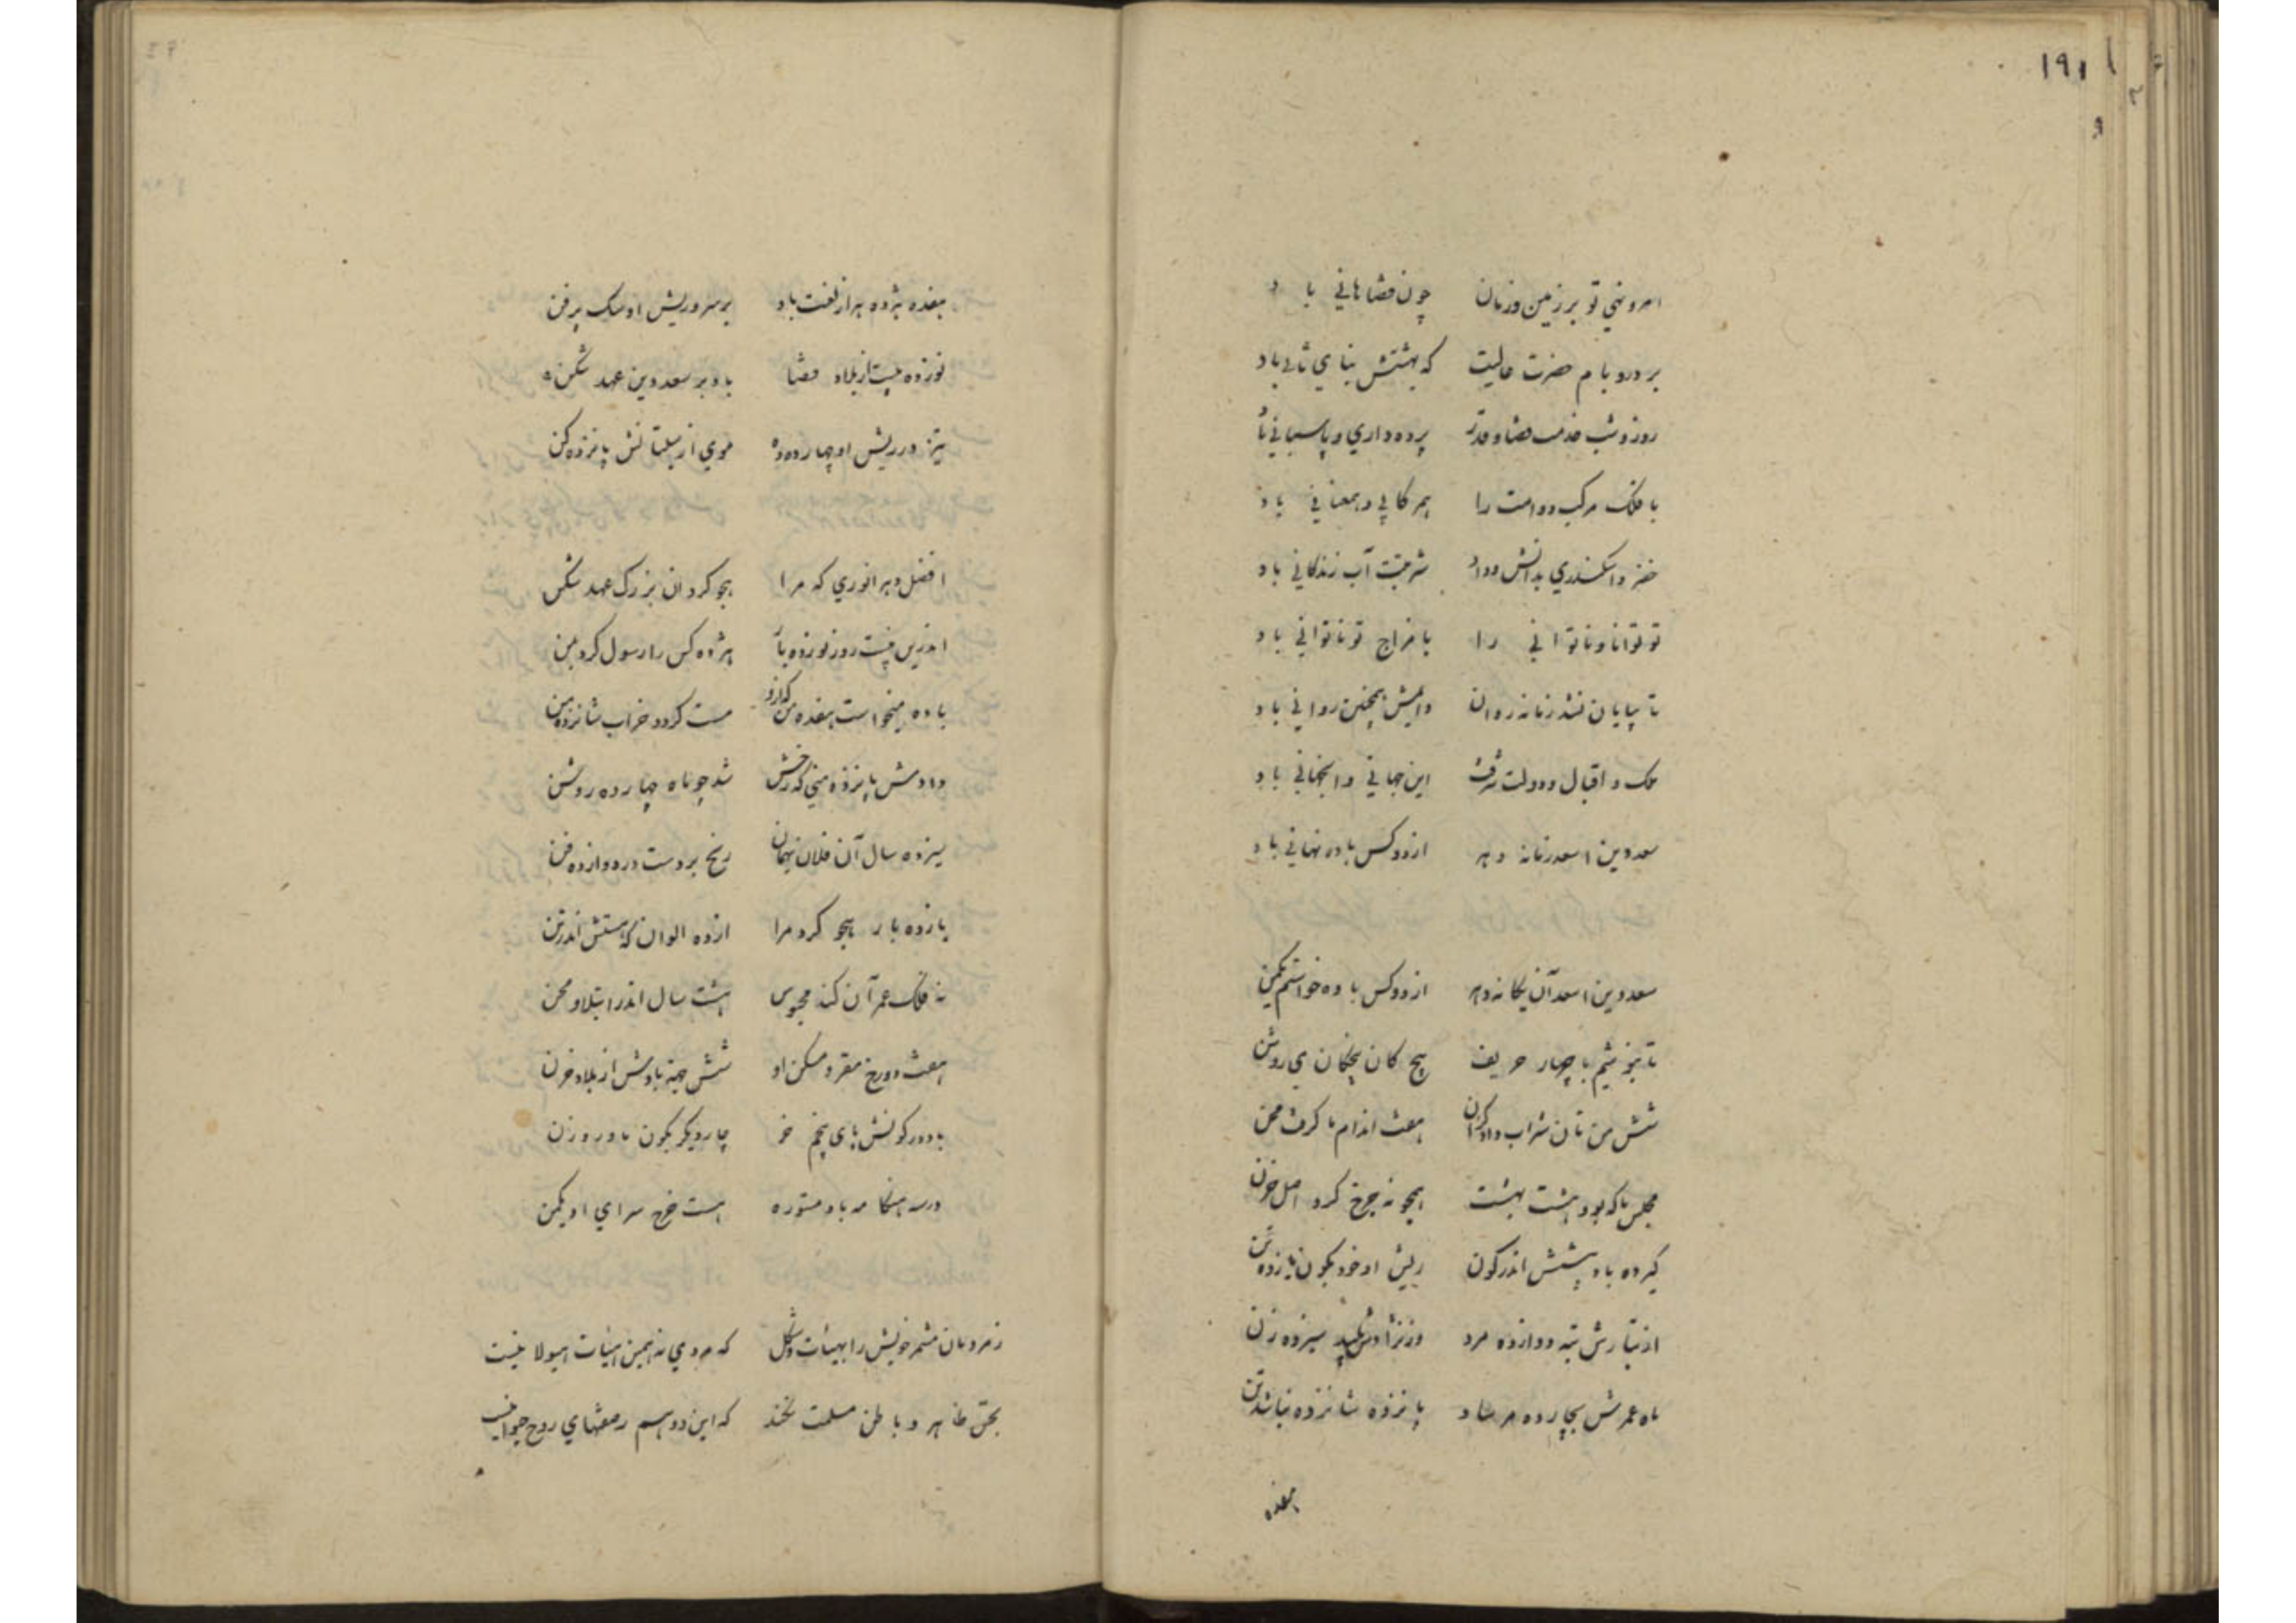 ۱۹۱
امر و نهی تو بر زمین و زمان چون قضاهانی باد
بر در و بام حضرت عالیت که بهشتش بنای ثانی باد
روز و شب خدمت قضا و قدر پرده داری و پاسبانی باد
با فلک مرکب دوامت را همرکابی و همعنانی باد
خضر و اسکندری بدانش و داد شربتت آب زندگانی باد
تو توانا و ناتوانی را با مزاج تو ناتوانی باد
تا بپایان نشد زمانه روان دایمش همچنین روانی باد
ملک و اقبال و دولت شرف این جهانی و آنجهانی باد
سعد دین اسعد زمانه و هر از دو کس باده نهانی باد
سعد دین اسعد آن یگانه دهر از دو کس باده خواستم بکمین
تا بخوشیم با چهار حریف پنج کان پنجگان می روشن
شش من تان شراب داد کزان هفت اندام ما گرفت محن
مجلس ما که بود هشت بهشت همچو نه چرخ کرد اصل حزن
کیر ده باد پیشش اندر کون ریش او خود بکون یازده تن
از تبارش تبه دوازده مرد وز نژادش پلید سیزده زن
ماه عمرش بچارده مرساد پانزده شانزده نباشد تن
هفده
هفده هژده هزار لعنت باد بر سر و ریش او سبک پر فن
نوزده بیست از بلا و قضا باد بر سعد دین عهد شکن
تیز در ریش او چهارده ده موی از سبلتانش پانزده کن
افضل دهر انوری که مرا هجو کرد آن بزرگ عهد شکن
اندرین بیست روز نوزده بار هژده کس را رسول کرد بمن
باده میخواست هفده من که ازو مست گردد خراب شانزده من
دادمش پانزده منی که رخش شد چو ماه چهارده روشن
سیزده سال آن فلان بهمان رنج بردست در دوازده فن
یازده بار هجو کرد مرا از ده الوان که هستش اندر تن
نه فلک عمر آن کند محبوس هشت سال اندر ابتلا و محن
هفت دوزخ مقر و مسکن او شش جهة بادش از بلا و حزن
باد در کونش پای پنجم خر چار دیگر بکون مادر و زن
در سه هنگامه باد مستوره هست خرج سرای او یکمن
ز مردمان مشمر خویش را بهیئات و شکل که مردمی نه همین هیات هیولا نیست
بحق ظاهر و باطن مسلمت نکند که این دو هم رمقهای روح حیوانیست